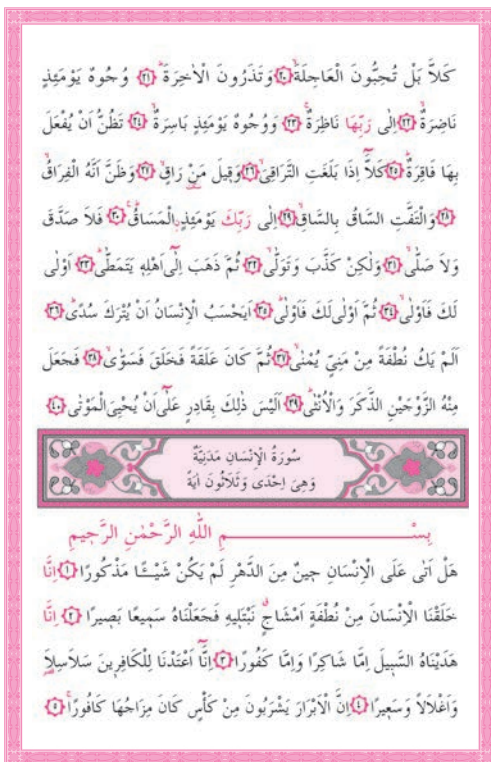 كَلَّا بَلْ تُحِبُّونَ الْعَاجِلَةَۙ ﴿٢٠﴾ وَتَذَرُونَ الْاٰخِرَةَۜ ﴿٢١﴾ وُجُوهٌ يَوْمَئِذٍ
نَاضِرَةٌۙ ﴿٢٢﴾ اِلٰى رَبِّهَا نَاظِرَةٌۚ ﴿٢٣﴾ وَوُجُوهٌ يَوْمَئِذٍ بَاسِرَةٌۙ ﴿٢٤﴾ تَظُنُّ اَنْ يُفْعَلَ
بِهَا فَاقِرَةٌۜ ﴿٢٥﴾ كَلَّٓا اِذَا بَلَغَتِ التَّرَاقِيَۙ ﴿٢٦﴾ وَق۪يلَ مَنْ رَاقٍۙ ﴿٢٧﴾ وَظَنَّ اَنَّهُ الْفِرَاقُۙ
﴿٢٨﴾ وَالْتَفَّتِ السَّاقُ بِالسَّاقِۙ ﴿٢٩﴾ اِلٰى رَبِّكَ يَوْمَئِذٍۨ الْمَسَاقُۜ ﴿٣٠﴾ فَلَا صَدَّقَ
وَلَا صَلّٰىۙ ﴿٣١﴾ وَلٰكِنْ كَذَّبَ وَتَوَلّٰىۙ ﴿٣٢﴾ ثُمَّ ذَهَبَ اِلٰٓى اَهْلِه۪ يَتَمَطّٰىۜ ﴿٣٣﴾ اَوْلٰى
لَكَ فَاَوْلٰىۙ ﴿٣٤﴾ ثُمَّ اَوْلٰى لَكَ فَاَوْلٰىۜ ﴿٣٥﴾ اَيَحْسَبُ الْاِنْسَانُ اَنْ يُتْرَكَ سُدًىۜ ﴿٣٦﴾
اَلَمْ يَكُ نُطْفَةً مِنْ مَنِيٍّ يُمْنٰىۙ ﴿٣٧﴾ ثُمَّ كَانَ عَلَقَةً فَخَلَقَ فَسَوّٰىۙ ﴿٣٨﴾ فَجَعَلَ
مِنْهُ الزَّوْجَيْنِ الذَّكَرَ وَالْاُنْثٰىۜ ﴿٣٩﴾ اَلَيْسَ ذٰلِكَ بِقَادِرٍ عَلٰٓى اَنْ يُحْيِيَ الْمَوْتٰى ﴿٤٠﴾
سُورَةُ الْاِنْسَانِ مَدَنِيَّةٌ
وَهِيَ اِحْدٰى وَثَلَاثُونَ اٰيَةً
بِسْمِ اللّٰهِ الرَّحْمٰنِ الرَّح۪يمِ
هَلْ اَتٰى عَلَى الْاِنْسَانِ ح۪ينٌ مِنَ الدَّهْرِ لَمْ يَكُنْ شَيْـًٔا مَذْكُورًا ﴿١﴾ اِنَّا
خَلَقْنَا الْاِنْسَانَ مِنْ نُطْفَةٍ اَمْشَاجٍۗ نَبْتَل۪يهِ فَجَعَلْنَاهُ سَم۪يعًا بَص۪يرًا ﴿٢﴾ اِنَّا
هَدَيْنَاهُ السَّب۪يلَ اِمَّا شَاكِرًا وَاِمَّا كَفُورًا ﴿٣﴾ اِنَّٓا اَعْتَدْنَا لِلْكَافِر۪ينَ سَلَاسِلَا۬
وَاَغْلَالًا وَسَع۪يرًا ﴿٤﴾ اِنَّ الْاَبْرَارَ يَشْرَبُونَ مِنْ كَأْسٍ كَانَ مِزَاجُهَا كَافُورًاۚ ﴿٥﴾